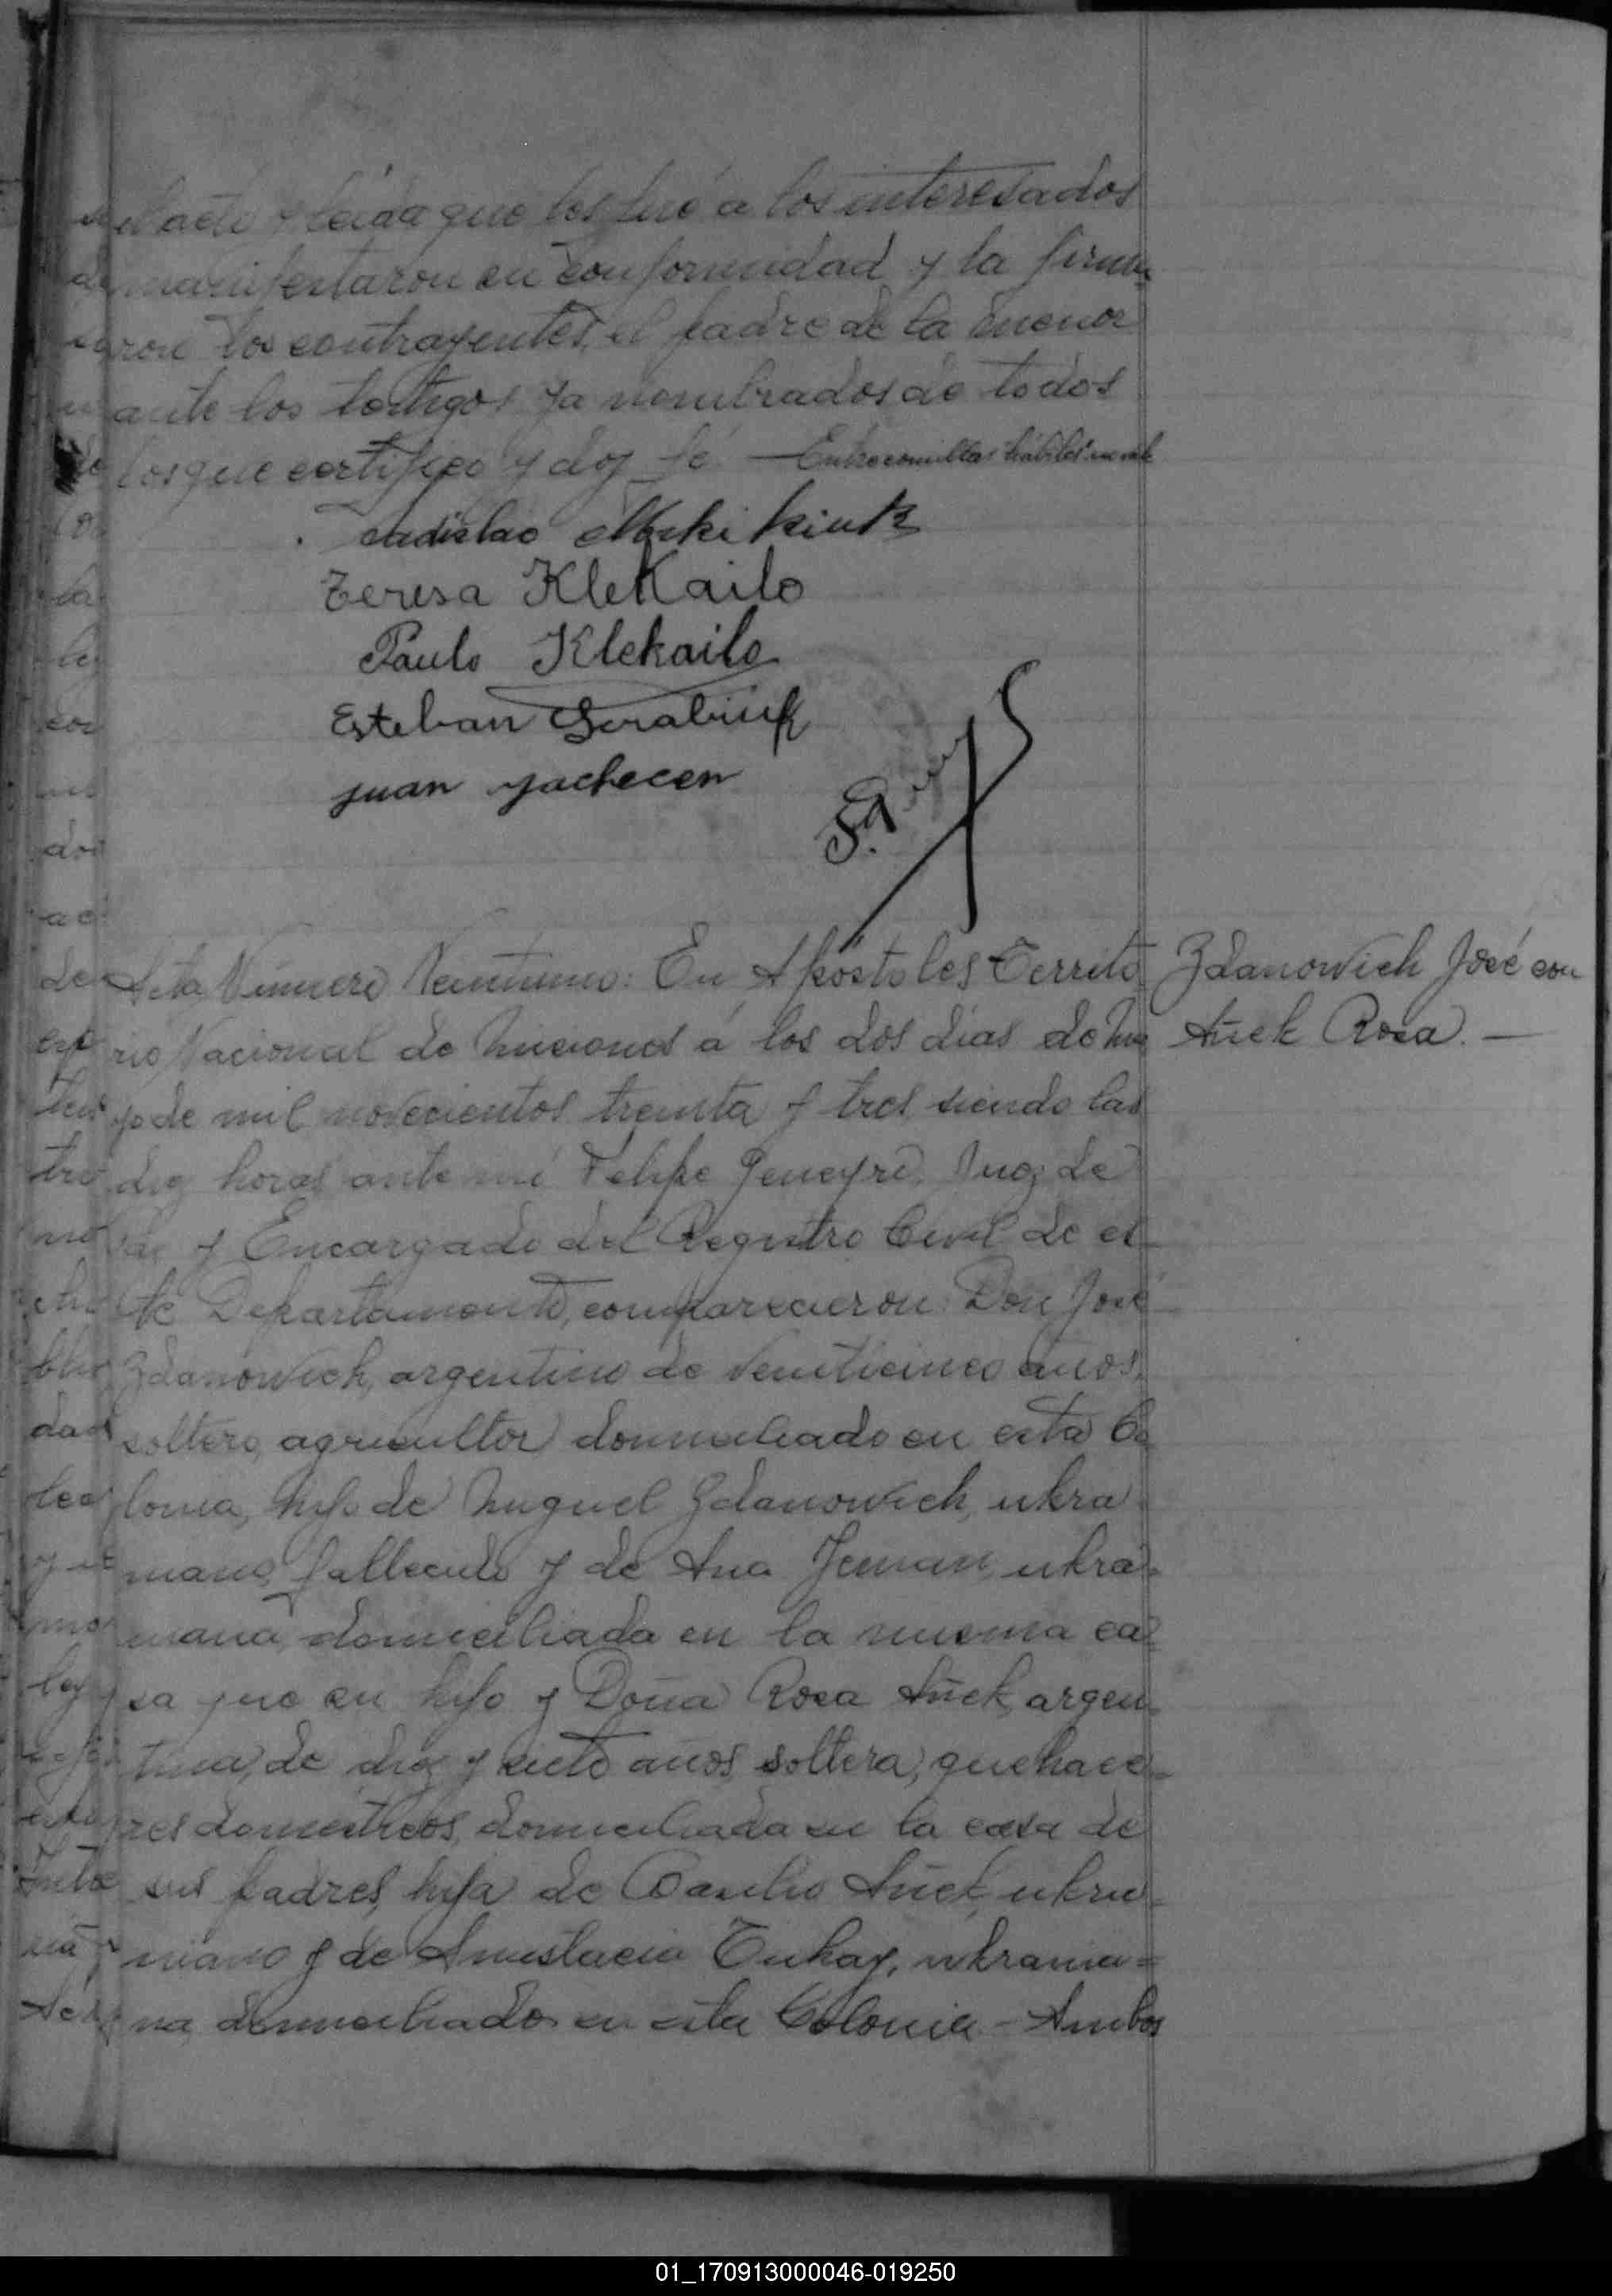 el acta y leida que les fué a los interesados
manifestaron su conformidad y la firma
ron los contrayentes, el padre de la menor
ante los testigos ya nombrados de todos
los que certifico y doy fé — Entrecomillas
Ladislao
Teresa Klekailo
Paulo Klekailo
Esteban
juan
Acta Número Veintiuno: En Apóstoles Territo
rio Nacional de Misiones á los dos dias de Ma
yo de mil novecientos treinta y tres, siendo las
diez horas ante mi Felipe Geneyro, Juez de
Paz y Encargado del Registro Civil de es
te Departamento, comparecieron: Don José
Zdanowich, argentino de veinticinco años,
soltero, agricultor domiciliado en esta Co
lonia, hijo de Miguel Zdanowich, ukra
niano, fallecido y de Ana Jeman, ukra-
niana, domiciliada en la misma ca-
sa que su hijo y Doña Rosa Añek, argen-
tina, de diez y siete años, soltera, quehace-
res domésticos, domiciliada en la casa de
sus padres, hija de Basilio Añek, ukra-
niano y de Anastacia Tukay, ukrania-
na domiciliados en esta Colonia - Ambos
Zdanowich José con
Añek Rosa. —
01_170913000046-019250